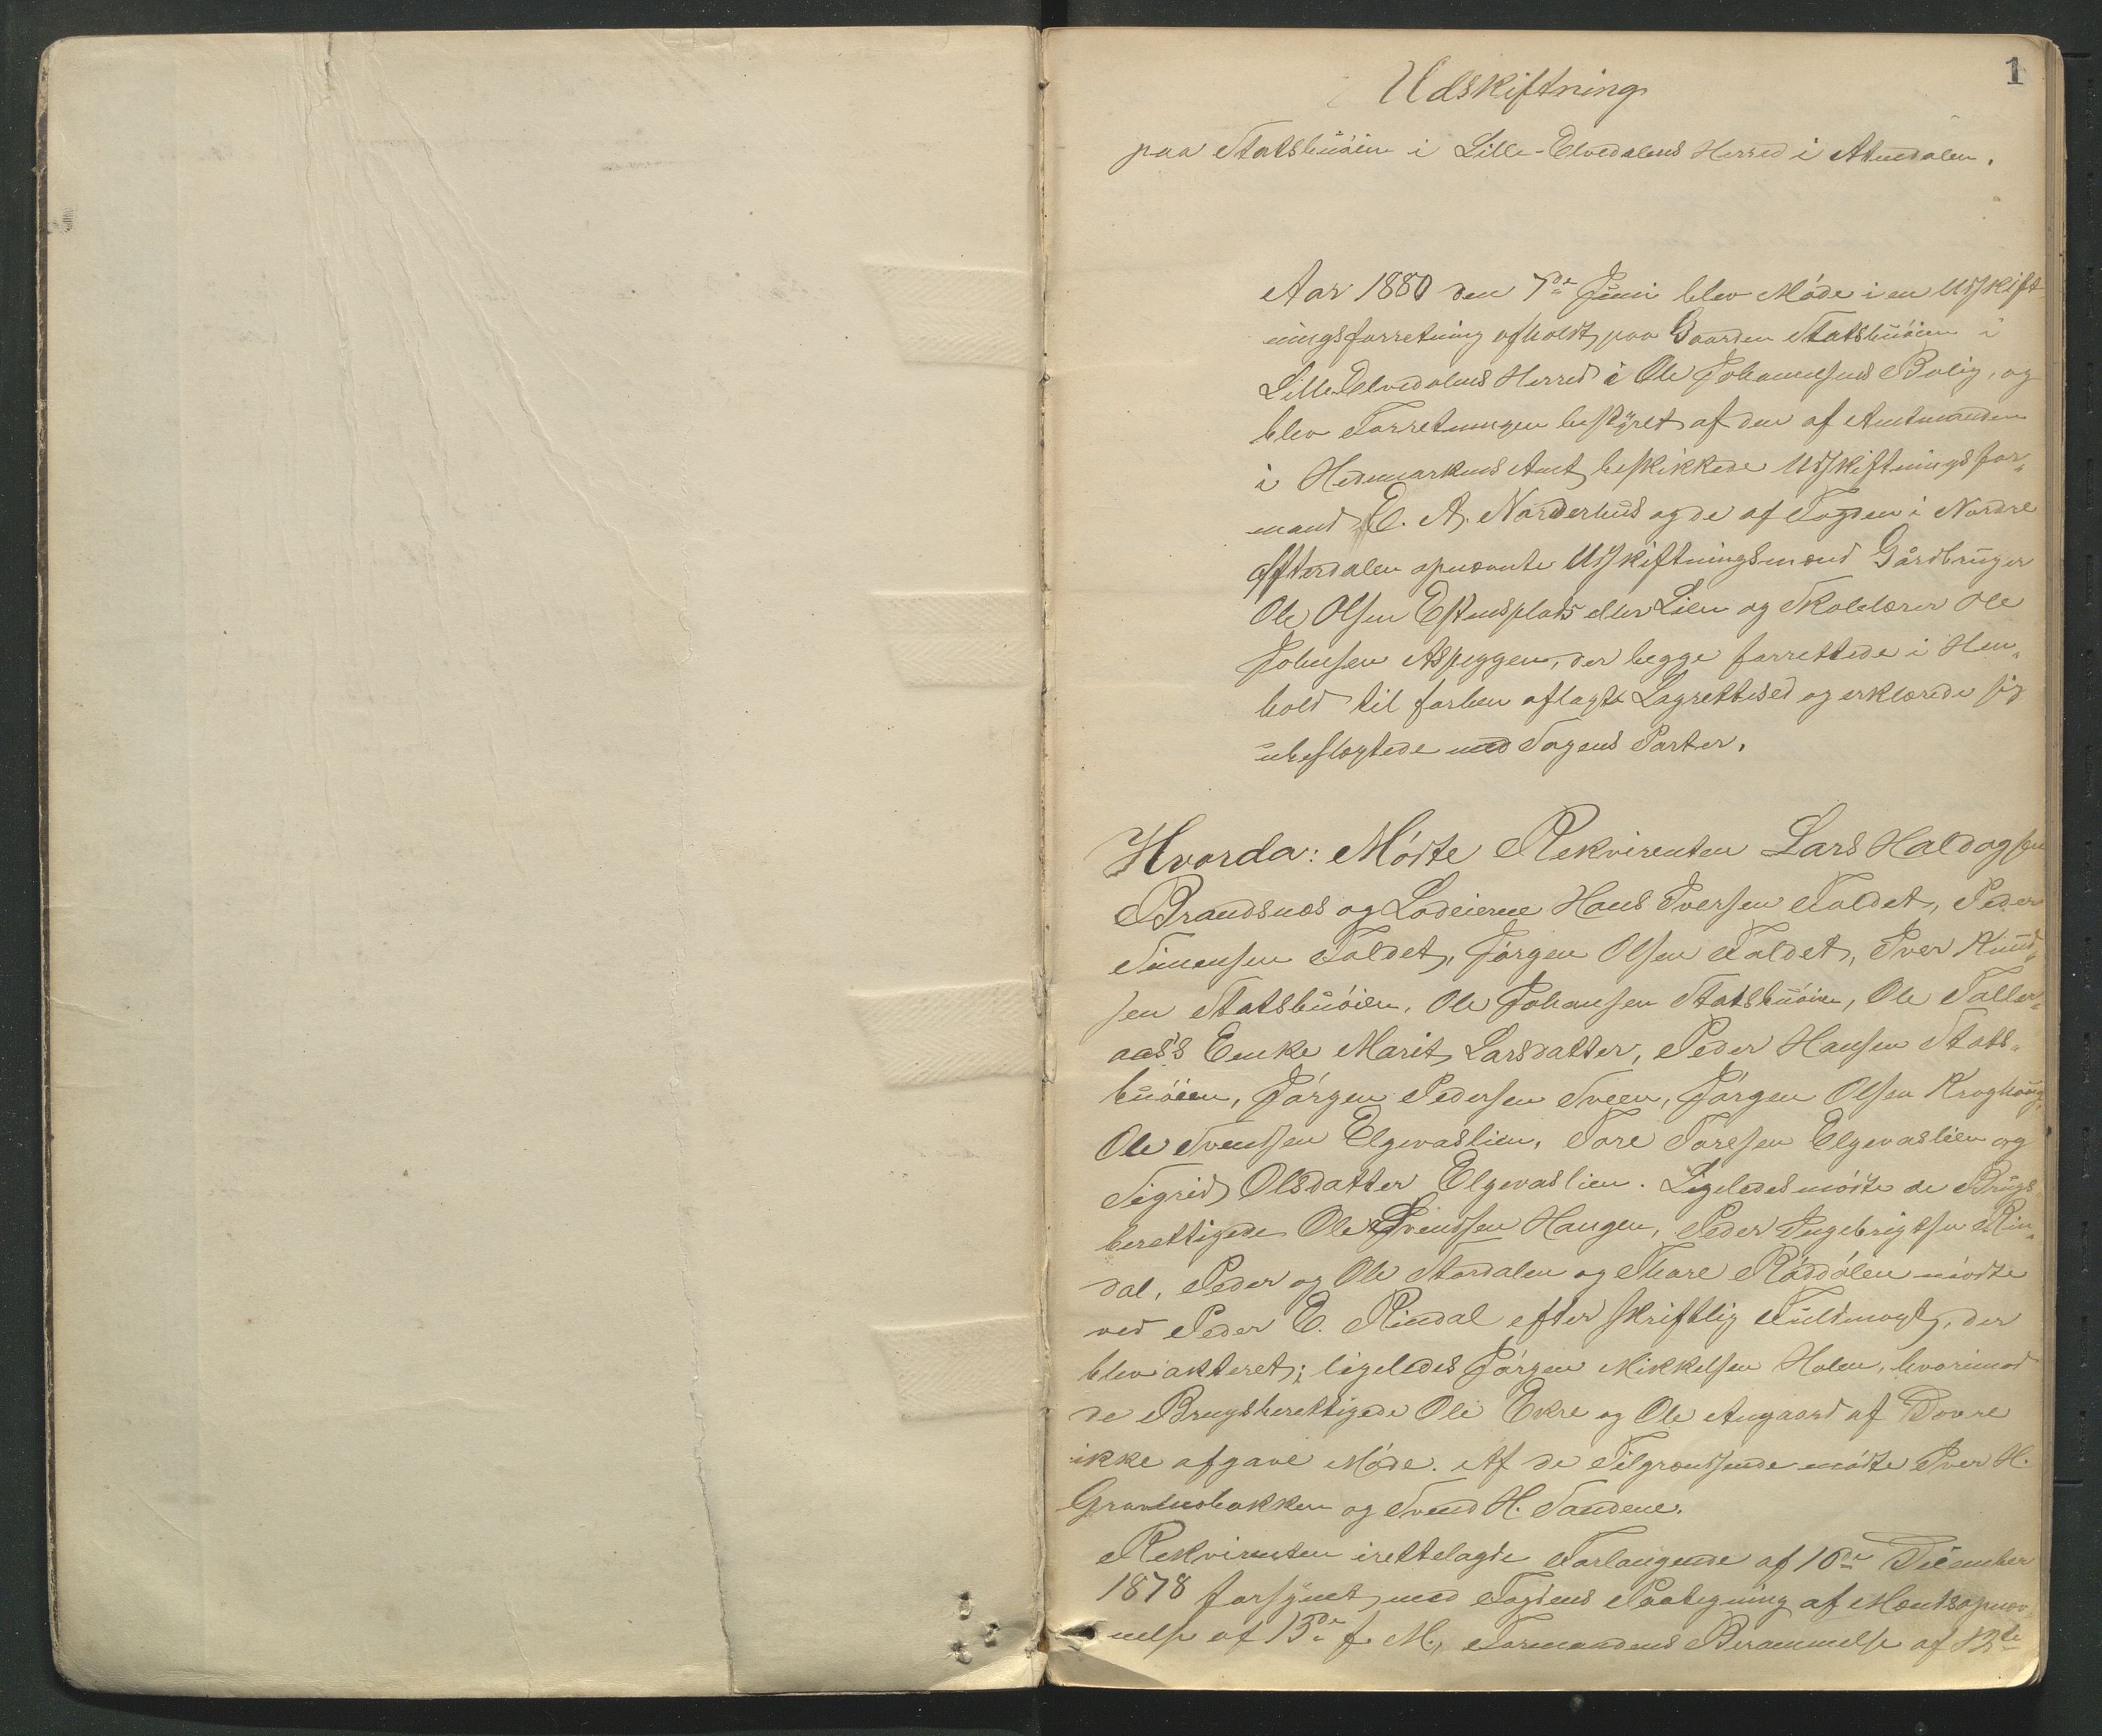 1
Udskiftning
paa Statsbuøien i Lille-Elvedalens Herred i Atnedalen.
Aar 1880 den 7de Juni blev Møde i en Udskift
ningsforretning afholdt paa Gaarden Statsbuøien i
Lille-Elvedalens Herred i Ole Johannesens Bolig, og
blev Forretningen bestyret af den af Amtmanden
i Hedemarkens Amt beskikkede Udskiftningsfor„
mand E. A. Norderhus og de af Fogden i Nordre
Østerdalen opnævnte Udskiftningsmænd Gårdbruger
Ole Olsen Estensplads eller Lien og Skolelærer Ole
Johnsen Aspeggen, der begge forrettede i Hen„
hold til forhen aflagt Lagrettesed og erklærede sig
ubeslægtede med Sagens Parter.
Hvorda: Mødte Rekvirenten Lars Haldogsen
Brandsnæs og Lodeierne Hans Iversen Foldet, Peder
Simensen Foldet, Jørgen Olsen Foldet, Iver Knud„
sen Statsbuøien, Ole Johansen Statsbuøien, Ole Toller„
aas's Enke Marit Larsdatter, Peder Hansen Stats„
buøien, Jørgen Pedersen Sveen, Jørgen Olsen Kroghaug,
Ole Svendsen Elgevaslien, Tore Toresen Elgevaslien og
Sigrid Olsdatter Elgevaslien. Ligeledes mødte de Brugs
berettigede Ole Svendsen Haugen, Peder Ingebrigtsen Rin„
dal, Peder og Ole Stordalen og Thore Röddölen mødte
ved Peder E. Rindal efter skriftlig Fuldmagt, der
blev akteret; ligeledes Jørgen Mikkelsen Holen, hvorimod
de Brugsberettigede Ole Ekre og Ole Angaard af Dovre
ikke afgave Møde. Af de Tilgrænsende mødte Iver H.
Gravbæbakken og Svend H. Sandene.
Rekvirenten irettelagde Forlangende af 16de December
1878 forsynet med Fogdens Paategning af Mændsopnæv
nelse af 13de f. M., Formandens Berammelse af